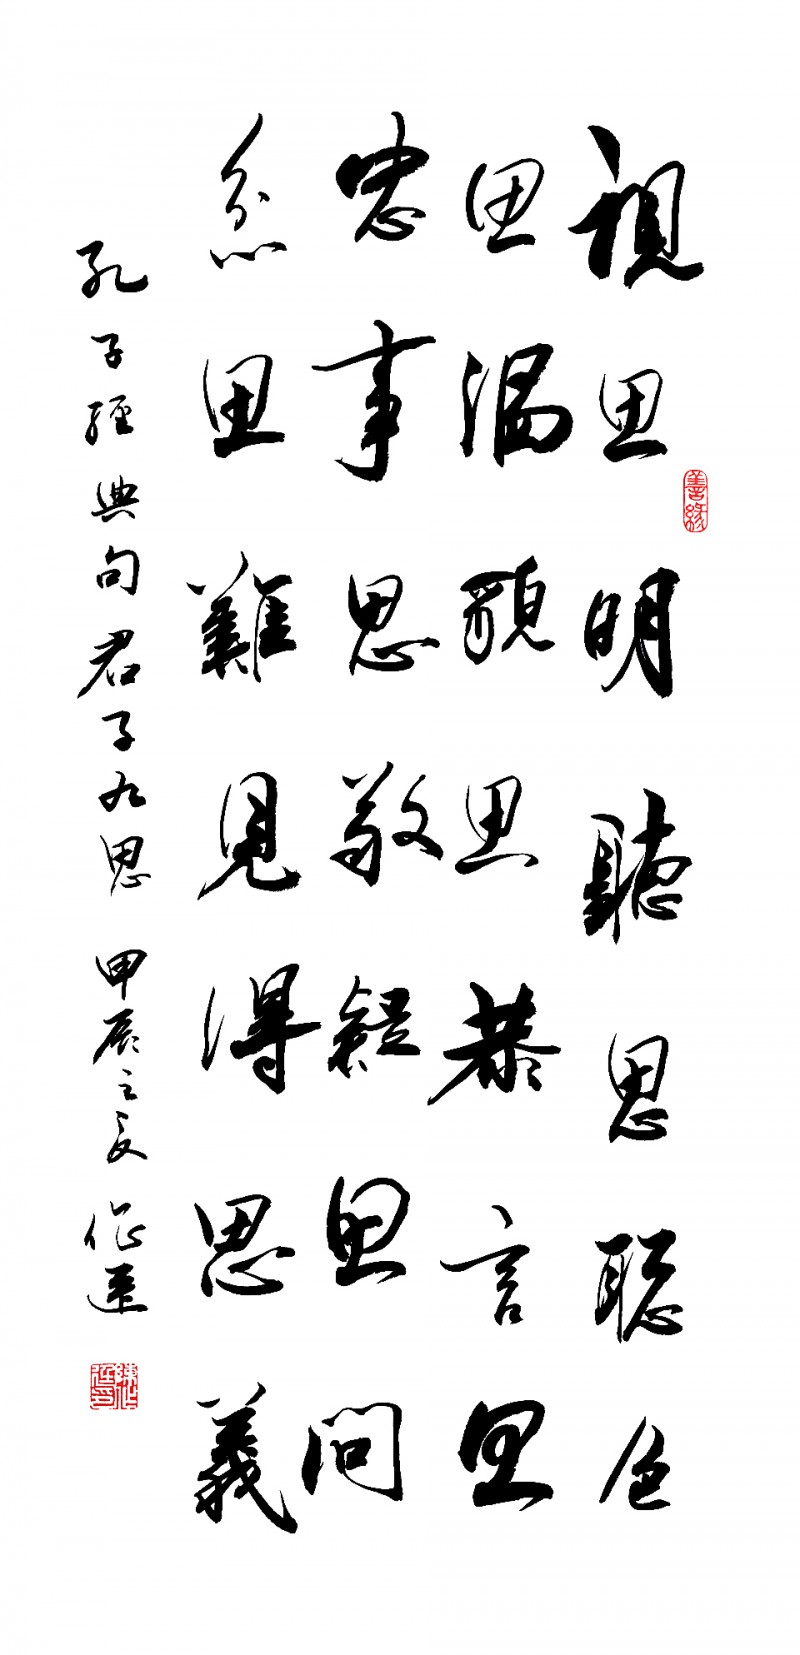 視思明聽思聰色
善緣
思温貌思恭言思
忠事思敬疑思問
忿思難見得思義
孔子經典句君子九思 甲辰之夏 作